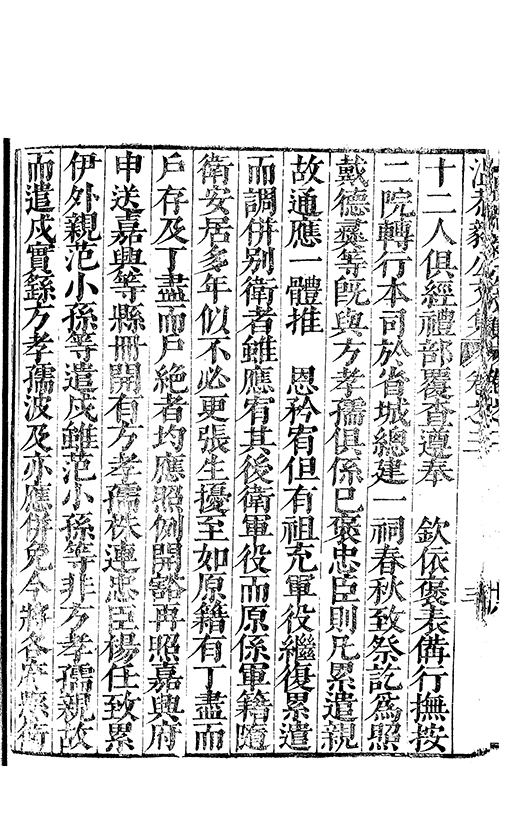 十二人俱經禮部覆查遵奉　欽依褒表備行撫按
二院轉行本司於省城總建一祠春秋致祭訖爲照
戴德彝等旣與方孝孺俱係已褒忠臣則凡累遣親
故通應一體推　恩矜宥但有祖充軍役繼復累遣
而調併别衛者雖應宥其後衛軍役而原係軍籍隨
衛安居多年似不必更張生擾至如原籍有丁盡而
戶存及丁盡而戶絶者均應照例開豁再照嘉興府
申送嘉興等縣冊開有方孝孺株連忠臣楊任致累
伊外親范小孫等遣戍雖范小孫等非方孝孺親故
而遣戍實繇方孝孺波及亦應併免今將各府縣衛